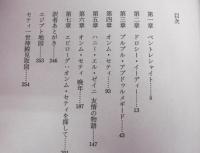 目次
第一章 ベントレシャイト……9
第二章 ドロシー・イーディー……13
第三章 ブルブル・アブドゥルメギード……43
第四章 オンム・セティ……93
第五章 ハニー・エル・ゼイニ 友情の物語……147
第六章 オンム・セティ 晩年……187
第七章 エピローグ：オンム・セティを探して……301
訳者あとがき……346
エジプト地図……353
セティ一世神殿見取図……354